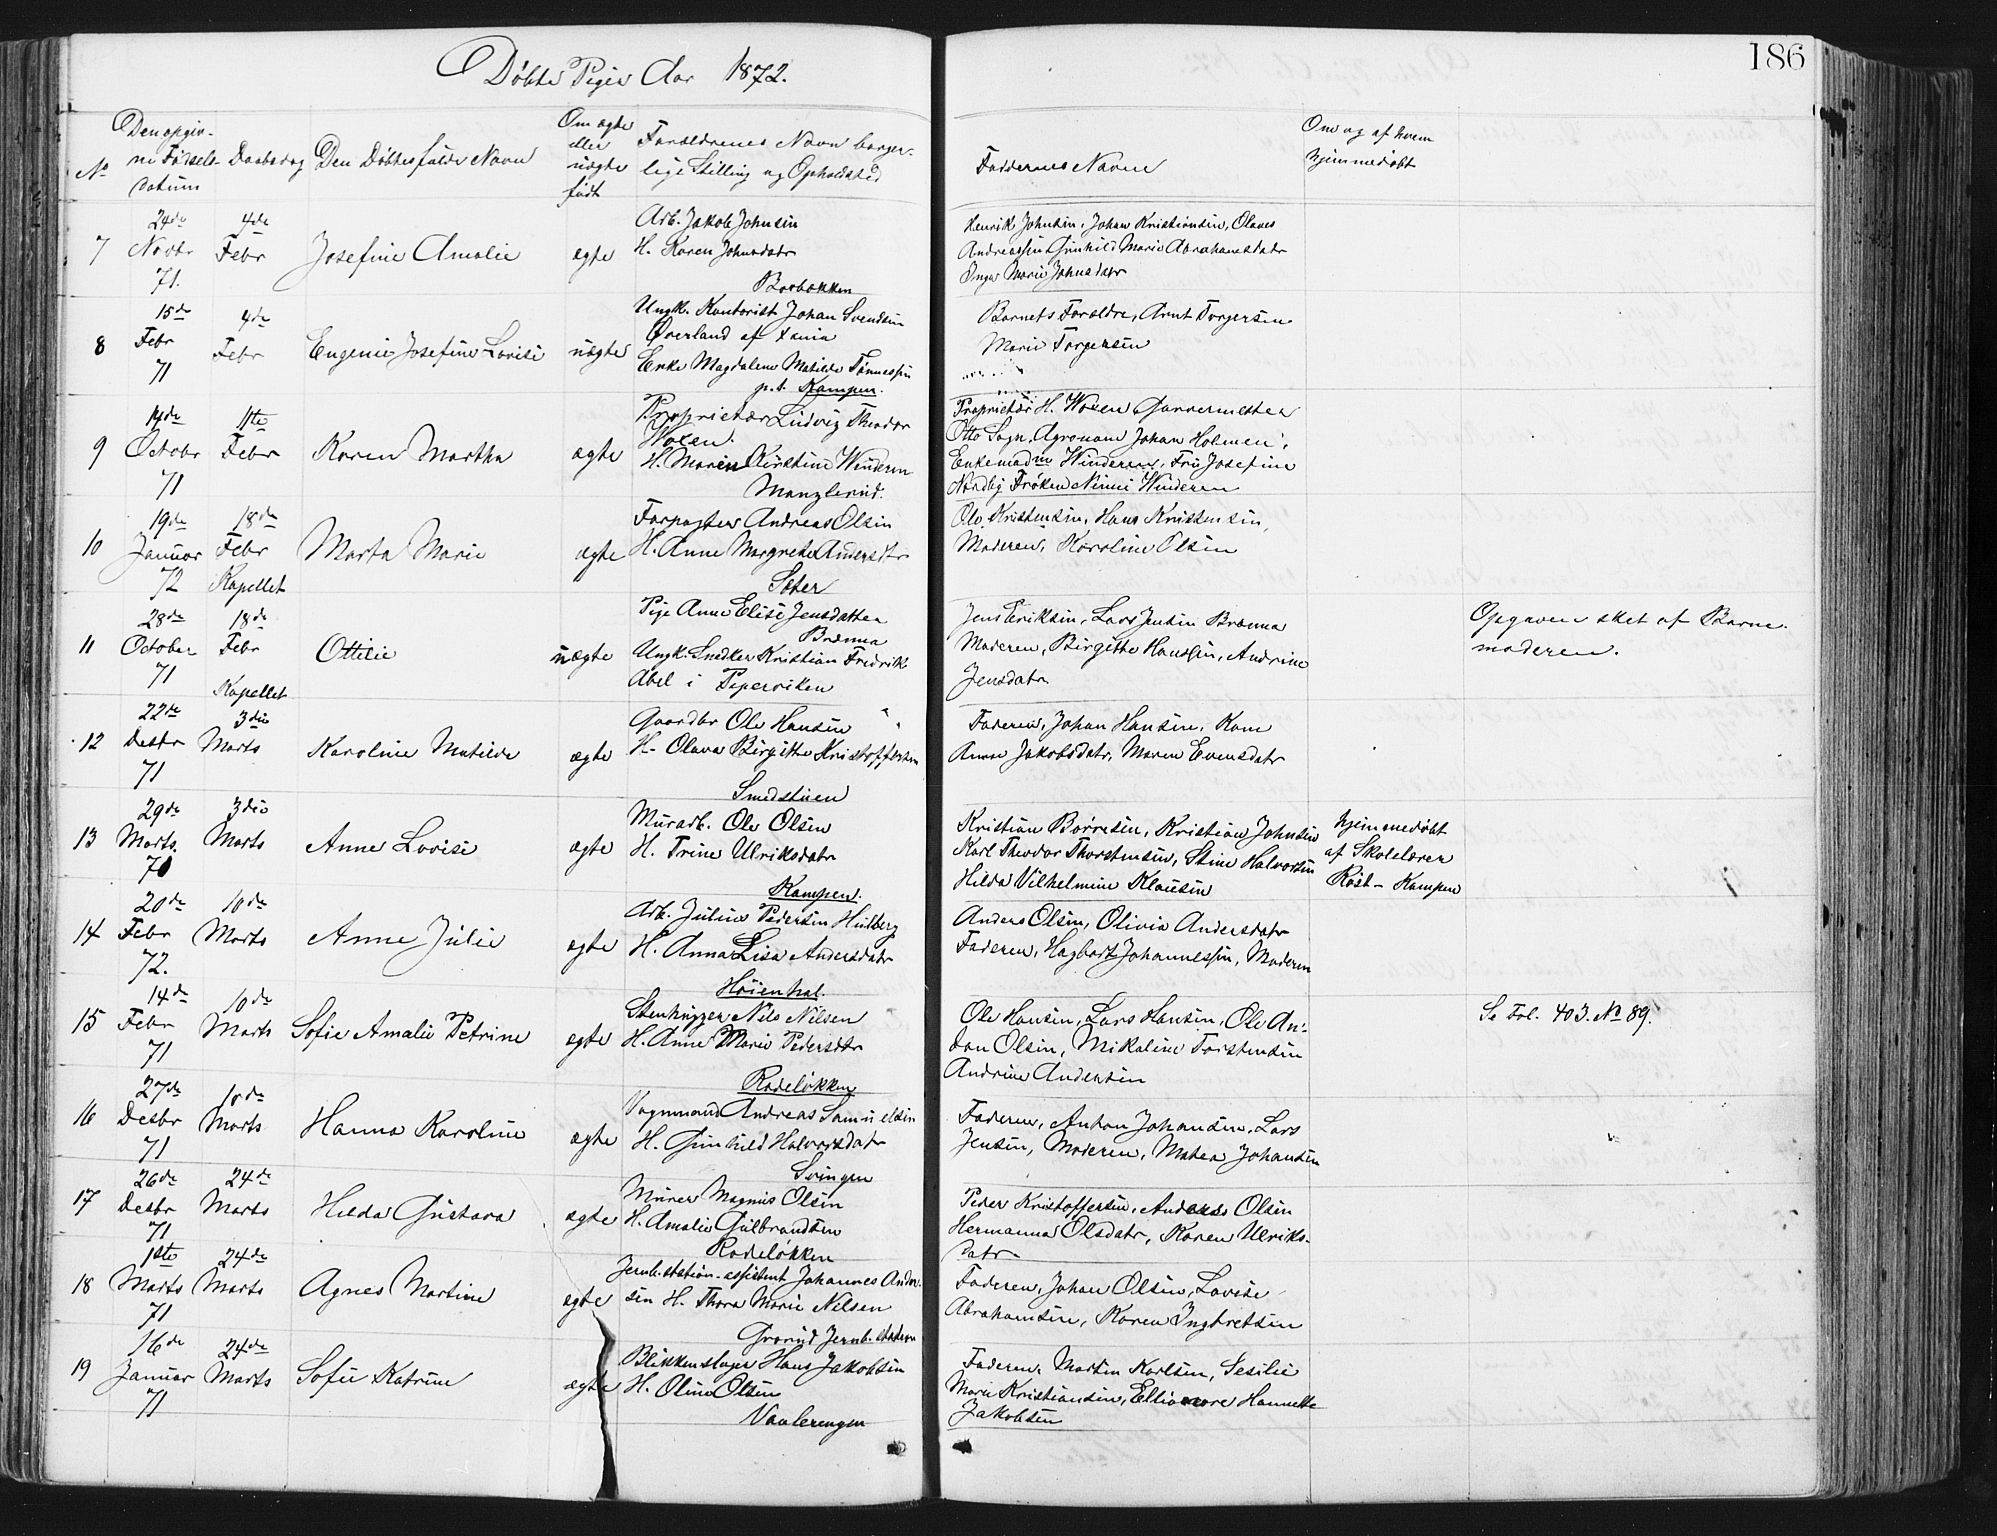 Døbte Piger Aar 1872.
186
No
Den opgiv-
ne Fødsels-
datum
Daabsdag
Den Døbtes fulde Navn
Om ægte
eller
uægte
født
Forældrenes Navn borger-
lige Stilling og Opholdsted
Faddernes Navne
Om og af hvem
hjemmedøbt
7
24de
Novbr
71.
4de
Febr
Josefine Amalie
ægte
Arb. Jakob Johnsen
H. Karen Johnsdatr
Bærbakken
Henrik Johnsen, Johan Kristiansen, Olaves
Andreassen Gunhild Marie Abrahamsdatr
Inger Marie Johnsdatr
8
15de
Febr
71
4de
Febr
Eugenie Josefine Lovise
uægte
Ungk. Kontorist Johan Svendsen
Øverland af
Enke Magdalene Matilde Tønnessen
p.t. Kampen.
Barnets Forældre, Arnt Torgersen
Marie Torgersen
9
14de
Octobr
71
11te
Febr
Karen Martha
ægte
Proprietær Ludvig Theodor
Woxen.
H. Maren Kirstine Winderen
Manglerud.
Proprietær H. Woxen Garvermester
Otto Sogn, Agronom Johan Holmen,
Enkemadm Winderen, Frü Josefine
Nordby Frøken Ninni Winderen
10
19de
Januar
72
18de
Febr
Kapellet
Marta Marie
ægte
Forpagter Andreas Olsen
H. Anne Margrete Andersdtr
Sæter
Ole Kristensen, Hans Kristensen,
Moderen, Karoline Olsen
11
28de
October
71
18de
Febr
Kapellet
Ottilie
uægte
Pige Anne Elise Jensdatter
Brænna
Ungk. Snedker Kristian Fredrik
Abel i Pipervi­ken
Jens Eriksen, Lars Jensen Brænna
Moderen, Birgitte Hanssen, Andrine
Jensdatr
Opgaven sket af Barne-
moderen.
12
22de
Desbr
71
3die
Marts
Karoline Matilde
ægte
Gaardbr Ole Hansen
H. Olava Birgitte Kristoffersen
Smedstuen
Faderen, Johan Hansen, Kone
Anne Jakobsdatr, Maren Evensdatr
13
29de
Marts
71
3die
Marts
Anne Lovise
ægte
Murarb. Ole Olsen
H. Trine Ulriksdatr
Kampen.
Kristian Børresen, Kristian Johnsen
Karl Theodor Thorstensen, Stine Halvorsen
Hilda Vilhelmine Klausen
hjemmedøbt
af Skolelærer
Røst - Kampen
14
20de
Febr
72.
10de
Marts
Anne Julie
ægte
Arb. Julius Pedersen Hulberg
H. Anna Lisa Andersdatr
Høienhal.
Anders Olsen, Olivia Andersdatr
Faderen, Hagbart Johannessen, Moderen
15
14de
Febr
71
10de
Marts
Sofie Amalie Petrine
ægte
Stenhugger Nils Nilsen
H. Anne Marie Pedersdtr
Rodeløkken
Ole Hansen, Lars Hansen, Ole An-
don Olsen, Mikaline Tostensen
Andrine Andersen
Se Fol. 403. No 89.
16
27de
Desbr
71
10de
Marts
Hanna Karoline
ægte
Vognmand Andreas Samuelsen
H. Gunhild Halvorsdatr
Svingen
Faderen, Anton Johansen, Lars
Jensen, Moderen, Matea Johansen
17
26de
Desbr
71
24de
Marts
Hilda Gustava
ægte
Murer Magnus Olsen
H. Amalie Gulbrandsen
Rodeløkken
Peder Kristoffersen, Anders Olsen
Hermanna Olsdatr, Karen Ulriks-
datr
18
1ste
Marts
71
24de
Marts
Agnes Martine
ægte
Jernb.station-assistent Johannes Ander-
sen H. Thora Marie Nilsen
Grorud Jernb.station
Faderen, Johan Olsen, Lovise
Abrahamsen, Karen Ingbretsen
19
16de
Januar
71
24de
Marts
Sofie Katrine
ægte
Blikkenslager Hans Jakobsen
H. Oline Olsen
Vaalerengen
Faderen, Martin Karlsen, Sesilie
Marie Kristiansen, Ellionore Hannette
Jakobsen